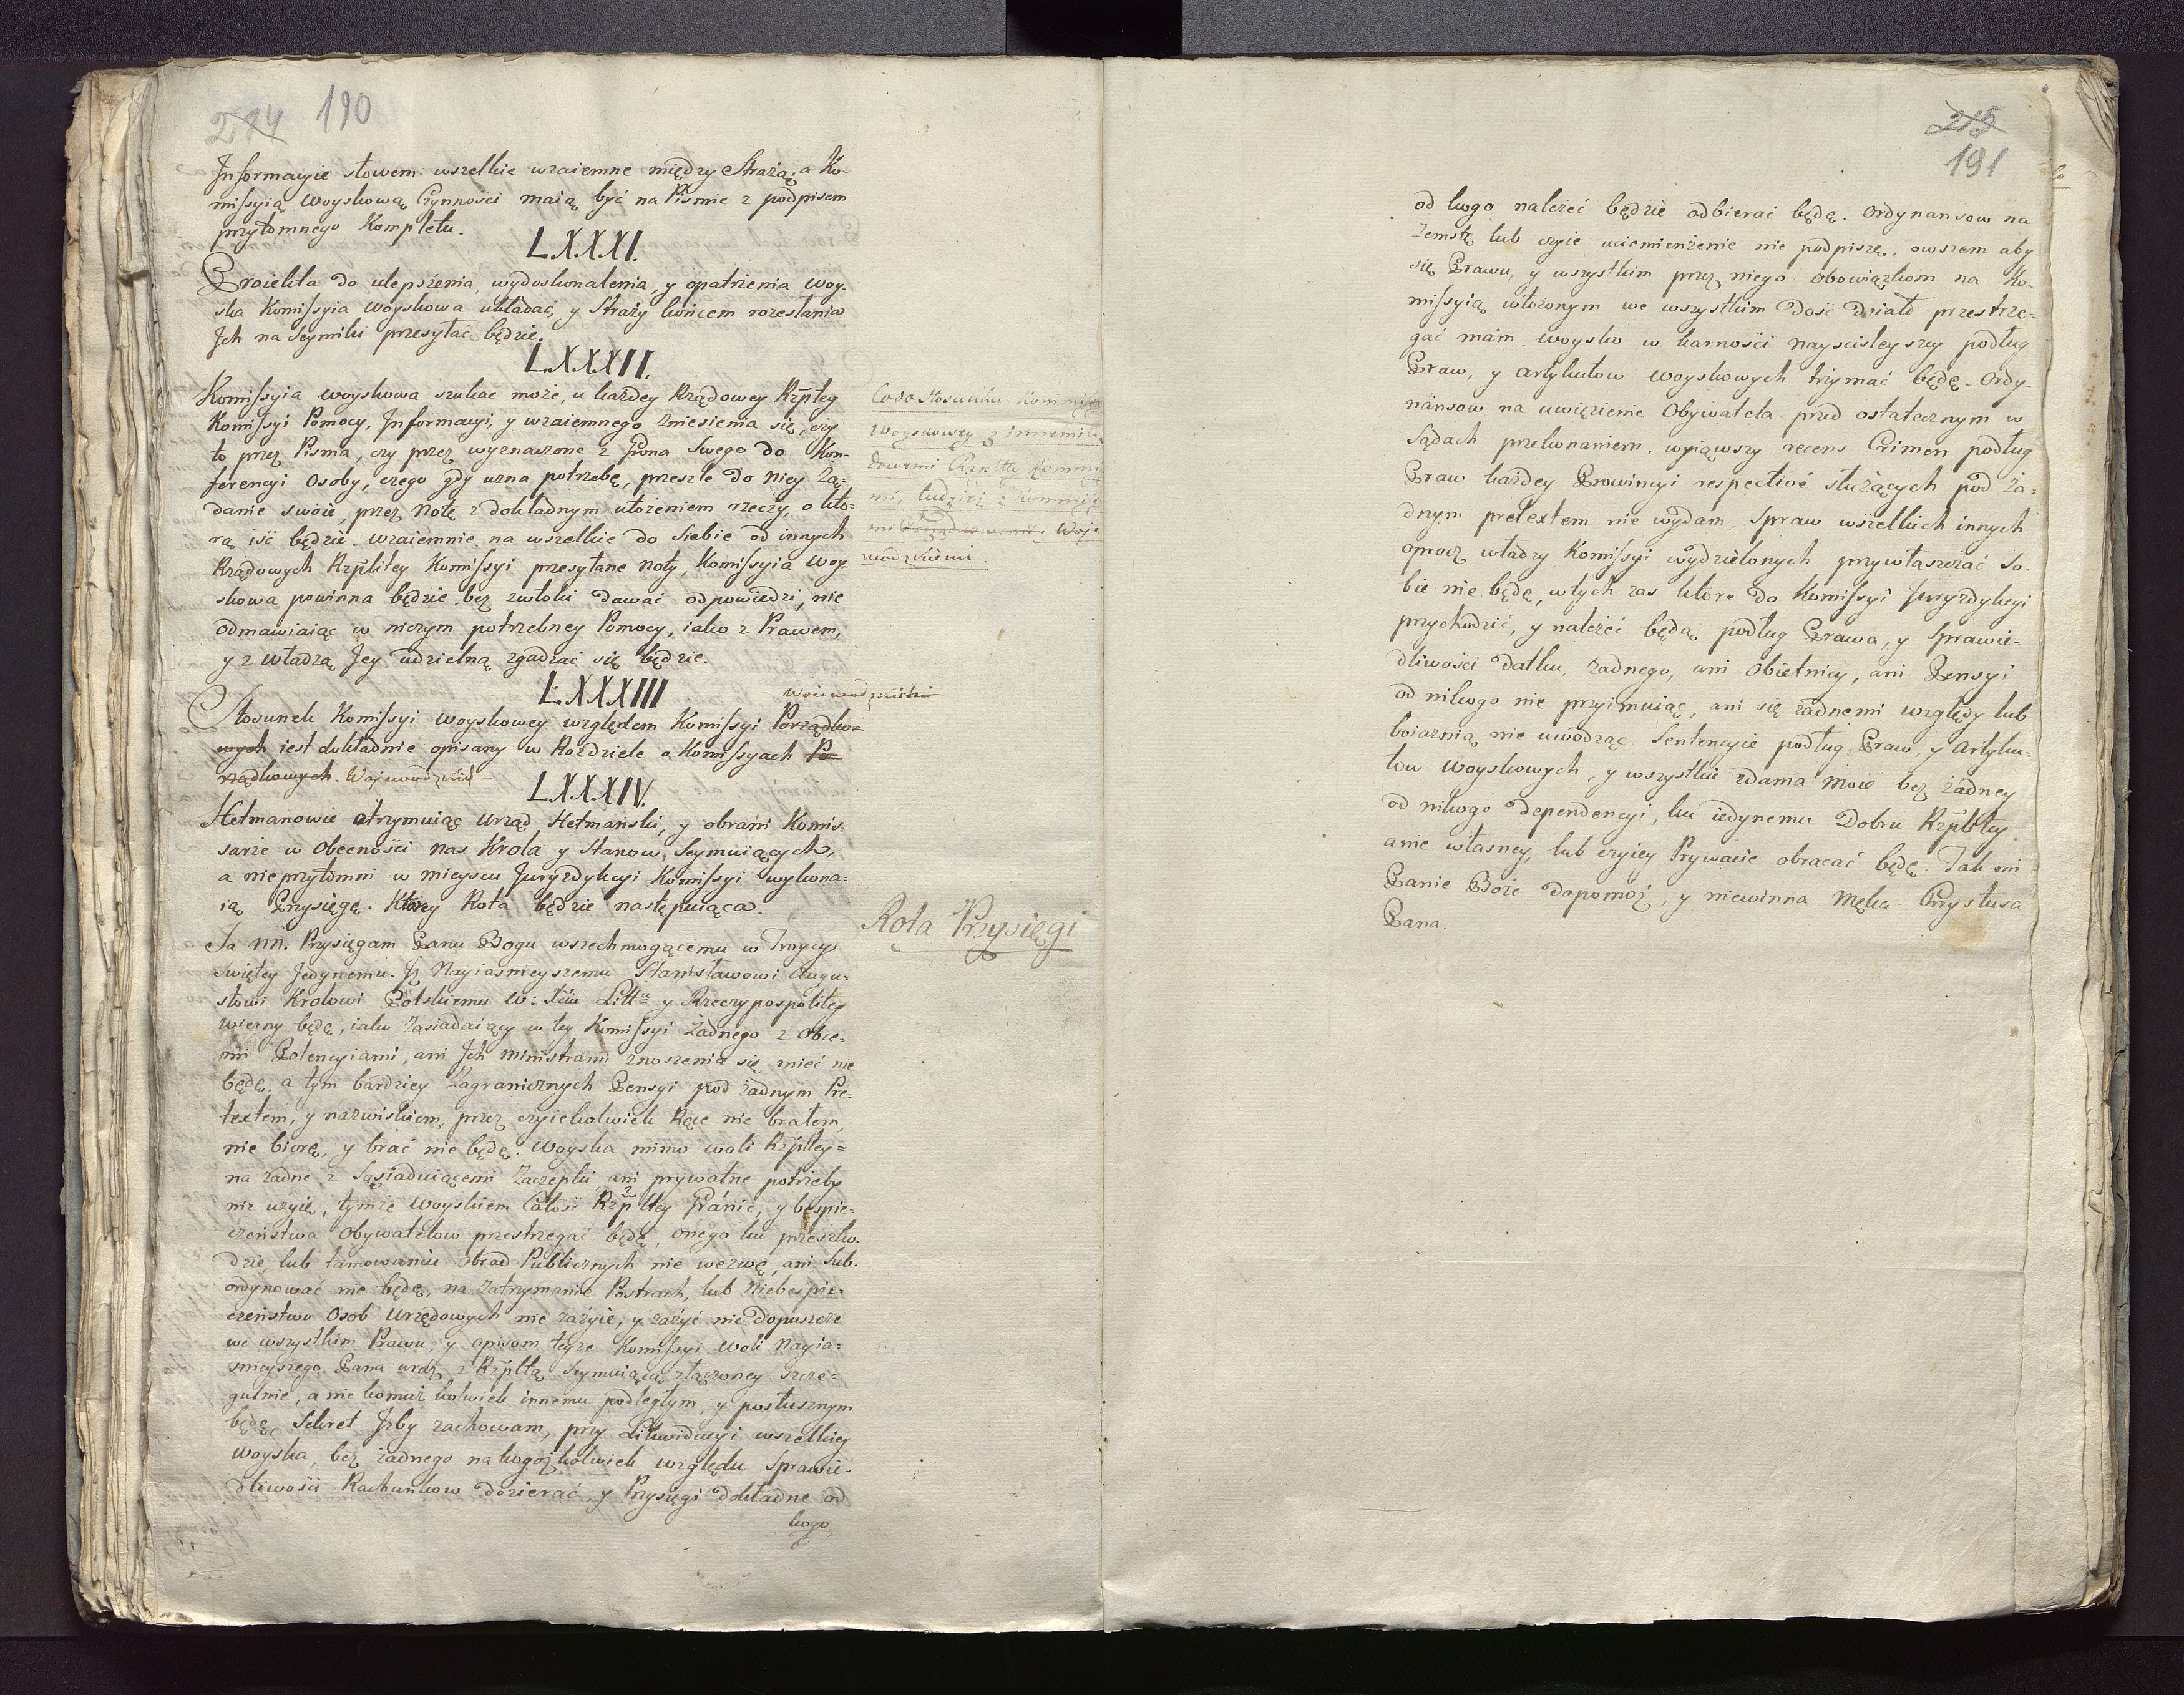 214 190
Informacyie słowem: wszelkie wzaiemne między Strażą, a Ko-
missyią Woyskową Czynności maią być na Pismie z podpisem
przytomnego Kompletu.
LXXXI.
Proiekta do ulepszenia, wydoskonalenia, y opatrzenia Woy-
ska Komissyia Woyskowa układać, y Straży końcem rozesłania
Jch na Seymiki przesyłać będzie.
LXXXII.
Komissyia Woyskowa szukać może, u każdey Rządowey Rzpltey
Komissyi Pomocy, Jnformacyi, y wzaiemnego zniesienia się, czy
to przez Pisma, czy przez wyznaczone z Grona Swego do Kon-
ferencyi Osoby, czego gdy uzna potrzebę, przeszle do niey Żą-
danie swoie, przez Notę z dokładnym ułożeniem rzeczy, o któ-
rą iść będzie. wzaiemnie na wszelkie do Siebie od innych
Rządowych Rzplitey Komissyi przesyłane Noty, Komissyia Woy-
skowa powinna będzie bez zwłoki dawać odpowiedzi, nie
odmawiaiąc w niczym potrzebney Pomocy, iako z Prawem,
y z władzą Jey udzielną zgadzać się będzie.
Co do Stosunku Kommissyi
Woyskowey z innemi
dowemi Rzpltey Kommis
mi, tudzież z Kommis
mi Porządkowemi. Woje
wodzkiemi.
LXXXIII
Woiewodzkich
Stosunek Komissyi Woyskowey względem Komissyi Porządko-
wych iest dokładnie opisany w Rozdziele o Komissyach Po-
rządkowych. Wojewodzkich
LXXXIV.
Hetmanowie otrzymuiąc Urząd Hetmański, y obrani Komis-
sarze w Obecności nas Krola y Stanow Seymuiących,
a nieprzytomni w mieyscu Juryzdykcyi Komissyi wykona-
ią Przysięgę. Ktorey Rota będzie następuiąca.
Rota Przysięgi
Ja NN. Przysięgam Panu Bogu wszechmogącemu w Troycy
Swiętey Jedynemu. Jż Nayiasnieyszemu Stanisławowi Augu-
stowi Krolowi Polskiemu W: Xiu Littu y Rzeczypospolitey
wierny będę, iako Zasiadaiący w tey Komissyi żadnego z Obce-
mi Potencyiami, ani Jch Ministrami znoszenia się, mieć nie
będę, a tym bardziey Zagranicznych Pensyi pod żadnym Pre-
textem, y nazwiskiem, przez czyiekolwiek Ręce nie brałem,
nie biorę, y brać nie będę. Woyska mimo woli Rzpltey-
na żadne z Sąsiaduiącemi Zaczepki, ani prywatne potrzeby
nie użyię, tymże Woyskiem Całość Rzpltey Granic, y bespie-
czeństwa Obywatelow przestrzegać będę, onego ku przeszko-
dzie, lub tamowaniu Obrad Publicznych nie wezwę, ani Sub-
ordynować nie będę, na zatrzymanie Postrach, lub Niebespie-
czeństwo Osob Urzędowych nie zażyię, y zażyć nie dopuszczę
we wszystkim Prawu, y opisom teyże Komissyi Woli Nayia-
snieyszego Pana wraz z Rzpltą Seymuiącą złączoney szcze-
gulnie, a nie komuż kolwiek innemu podległym, y posłusznym
będę, Sekret Jzby zachowam, przy Likwidacyi wszelkiey
Woyska, bez żadnego na kogoż kolwiek względu Sprawie-
dliwości Rachunkow dozierać, y Przysięgi dokładne od
kogo
215
191
od kogo należeć będzie odbierać będę. Ordynansow na
Zemstę lub czyie uciemiężenie nie podpiszę, owszem aby
się Prawu, y wszystkim przez niego Obowiązkom na Ko-
missyią włożonym we wszystkim dość działo przestrze-
gać mam. Woysko w karności nayscisleyszey podług
Praw, y Artykułow Woyskowych trzymać będę. Ordy-
nansow na uwięzienie Obywatela przed ostatecznym w
Sądach przekonaniem, wyiąwszy recens Crimen podług
Praw każdey Prowincyi respective służących pod ża-
dnym pretextem nie wydam, Spraw wszelkich innych
oprocz władzy Komissyi wydzielonych przywłaszczać so-
bie nie będę, w tych zas ktore do Komissyi Juryzdykcyi
przychodzić, y należeć będą podług Prawa, y Sprawie-
dliwości Datku, żadnego, ani Obietnicy, ani Pensyi
od nikogo nie przyimuiąc, ani się żadnemi względy lub
boiaznią nie uwodząc Sentencyie podług Praw, y Artyku-
łow Woyskowych, y wszystkie zdania moie bez żadney
od nikogo Dependencyi, ku iedynemu Dobru Rzpltey
a nie własney, lub czyiey Prywacie obracać będę. Tak mi
Panie Boże dopomoż, y niewinna Męka Chrystusa
Pana.